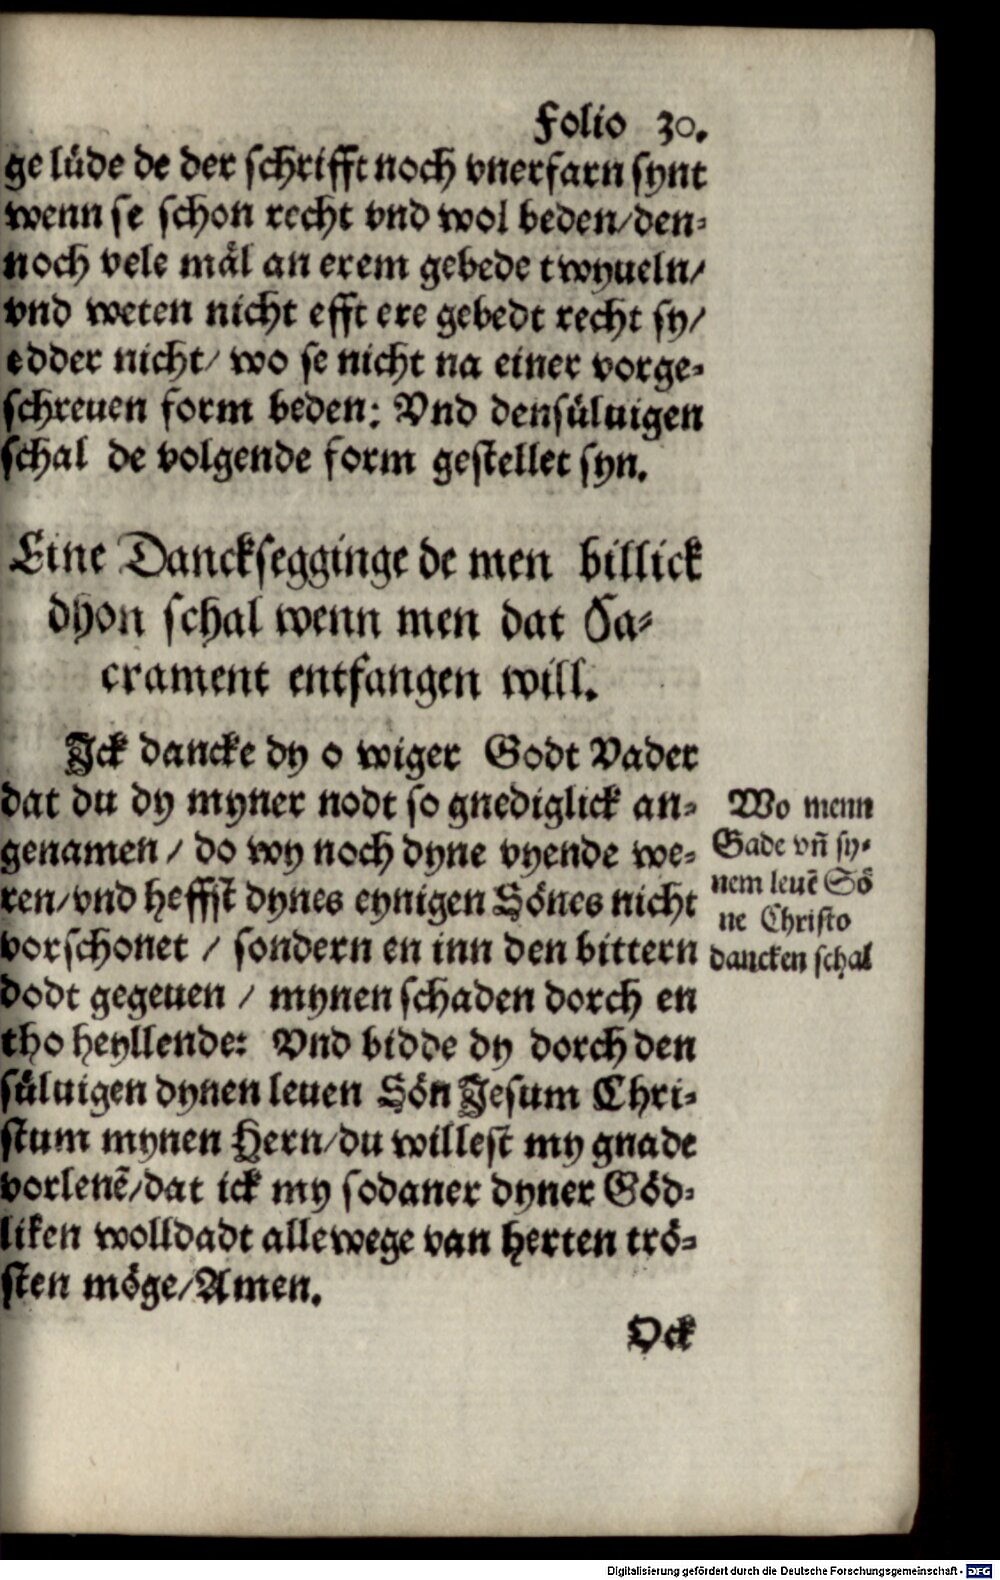 Folio 30.
ge lüde de der schrifft noch vnerfarn synt
wenn se schon recht vnd wol beden/den-
noch vele mål an erem gebede twyueln/
vnd weten nicht efft ere gebedt recht sy/
edder nicht/ wo se nicht na einer vorge-
schreuen form beden: Vnd densüluigen
schal de volgende form gestellet syn.
Eine Dancksegginge de men billick
dhon schal wenn men dat Sa-
crament entfangen will.
Ick dancke dy o wiger Godt Vader
dat du dy myner nodt so gnediglick an-
genamen / do wy noch dyne vyende we-
ren/vnd heffst dynes eynigen Sönes nicht
vorschonet / sondern en inn den bittern
dodt gegeuen / mynen schaden dorch en
tho heyllende: Vnd bidde dy dorch den
süluigen dynen leuen Sön Jesum Chri-
stum mynen Hern/du willest my gnade
vorlenē/dat ick my sodaner dyner Göd-
liken wolldadt allewege van herten trö-
sten möge/Amen.
Ock
Wo menn
Gade vñ sy-
nem leuē Sö
ne Christo
dancken schal
Digitalisierung gefördert durch die Deutsche Forschungsgemeinschaft - DFG